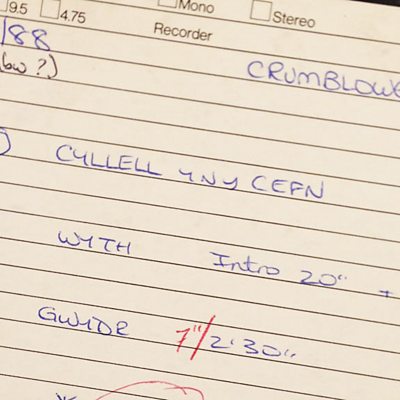 9.5 4.75 Mono Stereo
Recorder
/88
(bw?)
CRUMBLOWE
CYLLELL YNY CEFN
WYTH Intro 20" +
GWYDR 1"/2'30"